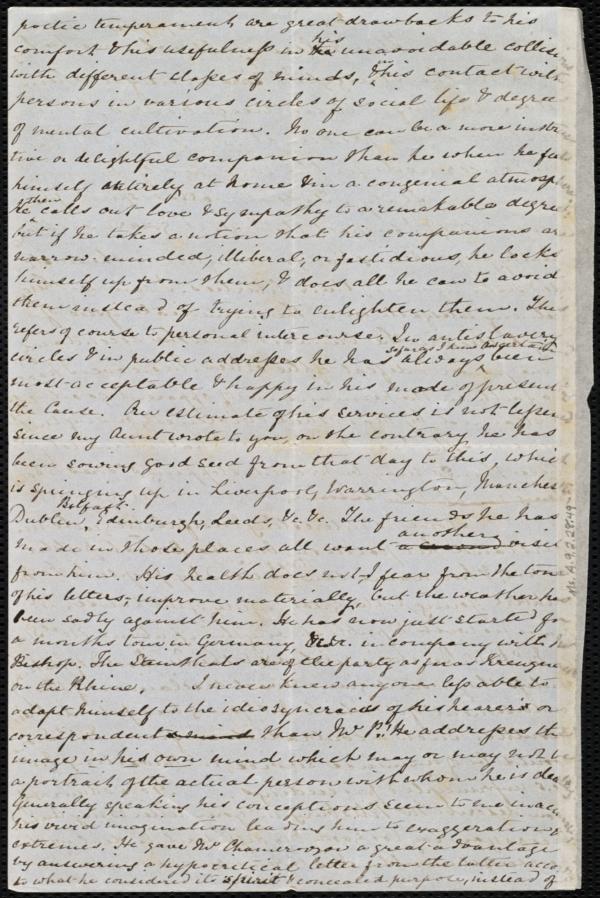 poetic temperament, are great drawbacks to his
comfort & his usefulness in his unavoidable collisi
with different shapes of minds, & his contact with
persons in various circles of social life & degree
of mental cultivation. No one can be a more instruc
tive or delightful companion than he when he feels
himself entirely at home & in a congenial atmosp
he then calls out love & sympathy to a remarkable degre
but if he takes a notion that his companions are
narrow-minded, illiberal, or fastidious, he locks
himself up from them, & does all he can to avoid
them instead of trying to enlighten them. This
refers of course to personal intercourse. In antislavery
circles & in public addresses he has so far as I can ascertain always been
most acceptable & happy in his mode of present
the Cause. Our estimate of his services is not lessen
since my Aunt wrote to you, on the contrary he has
been sowing good seed from that day to this, which
is springing up in Liverpool, Warrington, Manches
Dublin, Belfast, Edinburgh, Leeds, &c. &c. The friends he has
made in those places all want another visit
from him. His health does not I fear from the tone
of his letters, improve materially, but the weather ha
been sadly against him. He has now just started fo
a months tour in Germany, &c. in company with
Bishop. The Steinthals are of the party as far as Kreuzn
on the Rhine. I never knew anyone less able to
adapt himself to the ideosyncracies of his hearers or
correspondents than Mr P. He addresses the
image in his own mind which may or may not be
a portrait of the actual person with whom he is dea
Generally speaking his conceptions seem to me inaccu
his vivid imagination leading him to exaggeration &
extremes. He gave Mr Chamerovzow a great advantage
by answering a hypocritical letter from the latter acco
to what he considered its spirit & concealed purpose, instead of
Ms. A.9.2.28.49